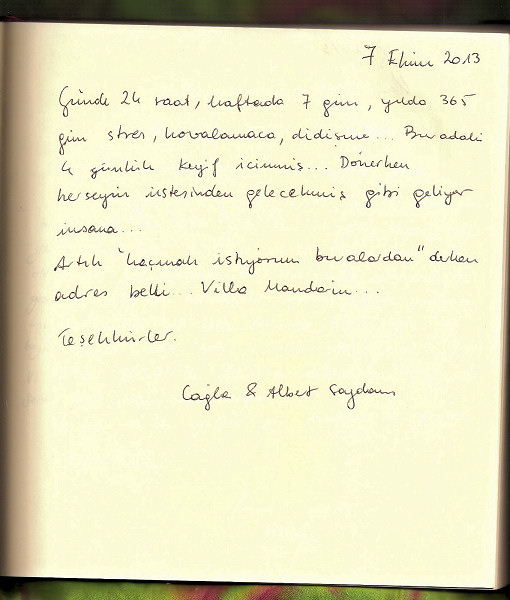 7 Ekim 2013
Günde 24 saat, haftada 7 gün, yılda 365
gün stres, kovalamaca, didişme... Buradaki
4 günlük keyif içinmiş... Dönerken
herşeyin üstesinden gelecekmiş gibi geliyor
insana...
Artık "kaçmak istiyorum buralardan" derken
adres belli... Villa Mandarin...
Teşekkürler.
Çağla & Albert Saydam